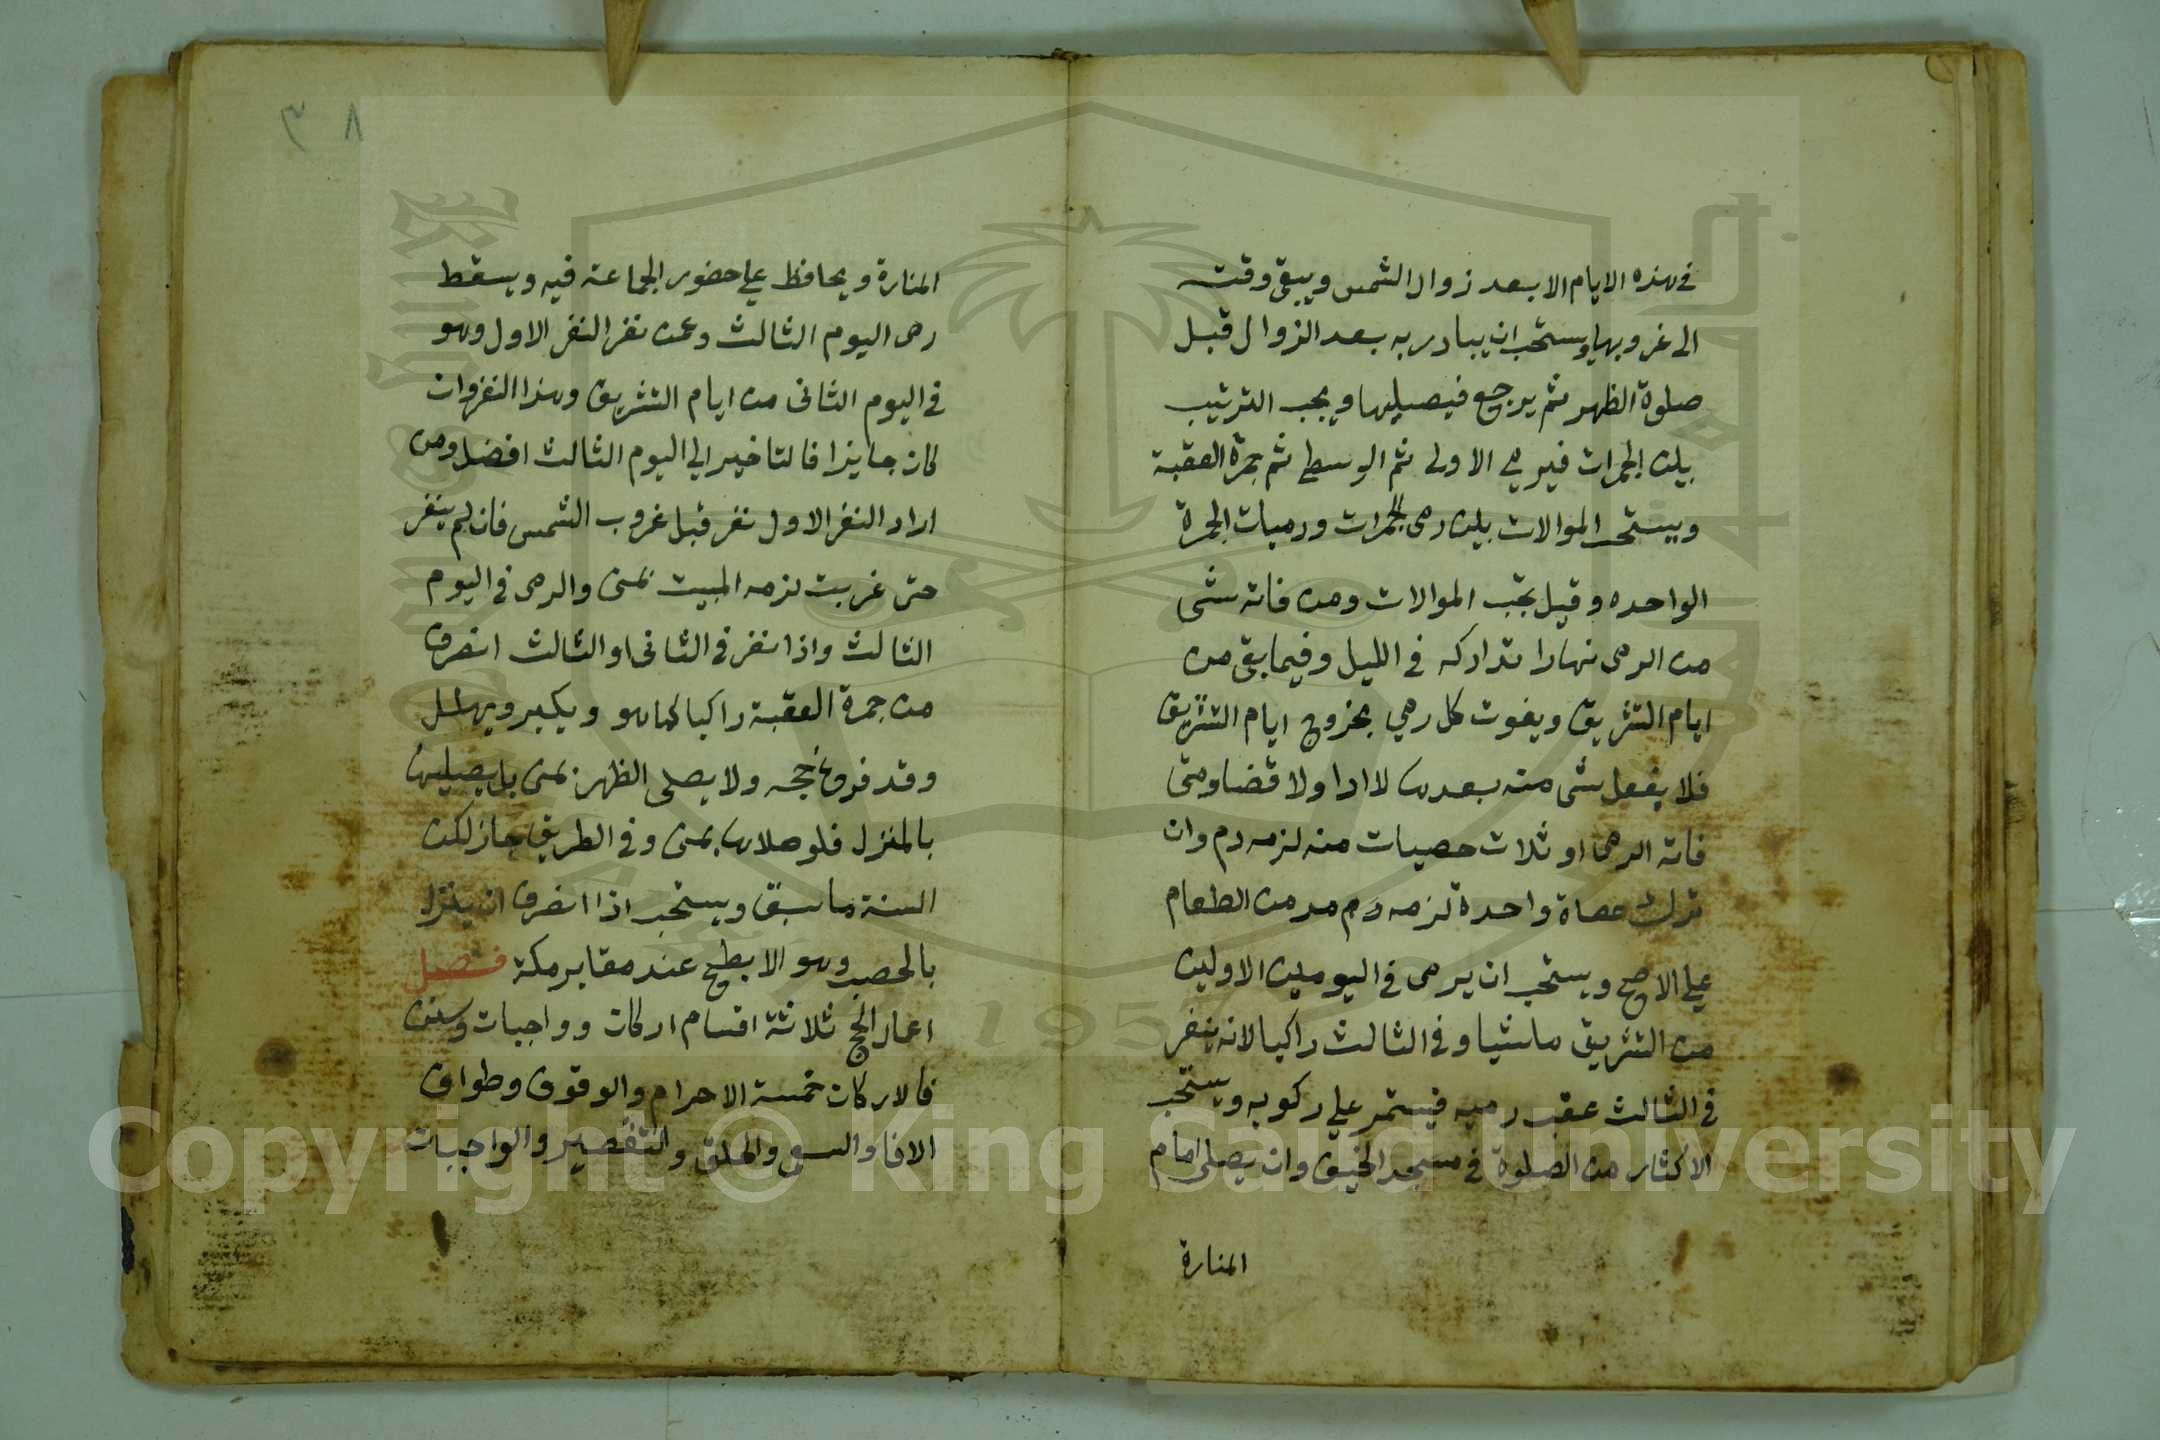 في هذه الايام الا بعد زوال الشمس ويبقى وقته
الى غروبها ويستحب ان يبادر به بعد الزوال قبل
صلوة الظهر ثم يرجع فيصليها ويجب الترتيب
بين الجمرات فيرمي الاولى ثم الوسطي ثم جمرة العقبة
ويستحب الموالات بين رمى الجمرات ورميات الجمرة
الواحده وقيل تجب الموالات ومن فاته شى
من الرمى نهارا تداركه في الليل وفيما بقى من
ايام التشريق ويفوت كل رمي بخروج ايام التشريق
فلا يفعل شى منه بعدها لا ادا ولا قضا ومتى
فاته الرمى او ثلاث حصيات منه لزمه دم وان
ترك حصاة واحدة لزمه دم مد من الطعام
علي الاصح ويستحب ان يرمى في اليومين الاولين
من التشريق ماشيا وفي الثالث راكبا لانه ينفر
في الثالث عقب رميه فيستمر علي ركوبه ويستحب
الاكثار من الصلوة في مسجد الخيف وان يصلى امام
المنارة
٣٨
المنارة ويحافظ علي حضور الجماعة فيه ويسقط
رمى اليوم الثالث عمن نفر النفر الاول وهو
في اليوم الثانى من ايام التشريق وهذا النفر وان
كان جايزا فالتاخير الي اليوم الثالث افضل ومن
اراد النفر الاول نفر قبل غروب الشمس فان لم ينفر
حتى غربت لزمه المبيت بمنى والرمى في اليوم
الثالث واذا نفر في الثانى او الثالث انصرف
من جمرة العقبة راكبا كما هو ويكبر ويهلل
وقد فرغ حجه ولا يصلى الظهر بمنى بل يصليها
بالمنزل فلو صلاها بمنى وفي الطريق جاز لكن
السنة ما سبق ويستحب اذا انصرف ان ينزل
بالمحصب وهو الابطح عند مقابر مكة فصل
اعمال الحج ثلاثة اقسام اركان وواجبات وسنن
فالاركان خمسة الاحرام والوقوف وطواف
الافا والسعي والحلق والتقصير والواجبات
Copyright © King Saud University
195